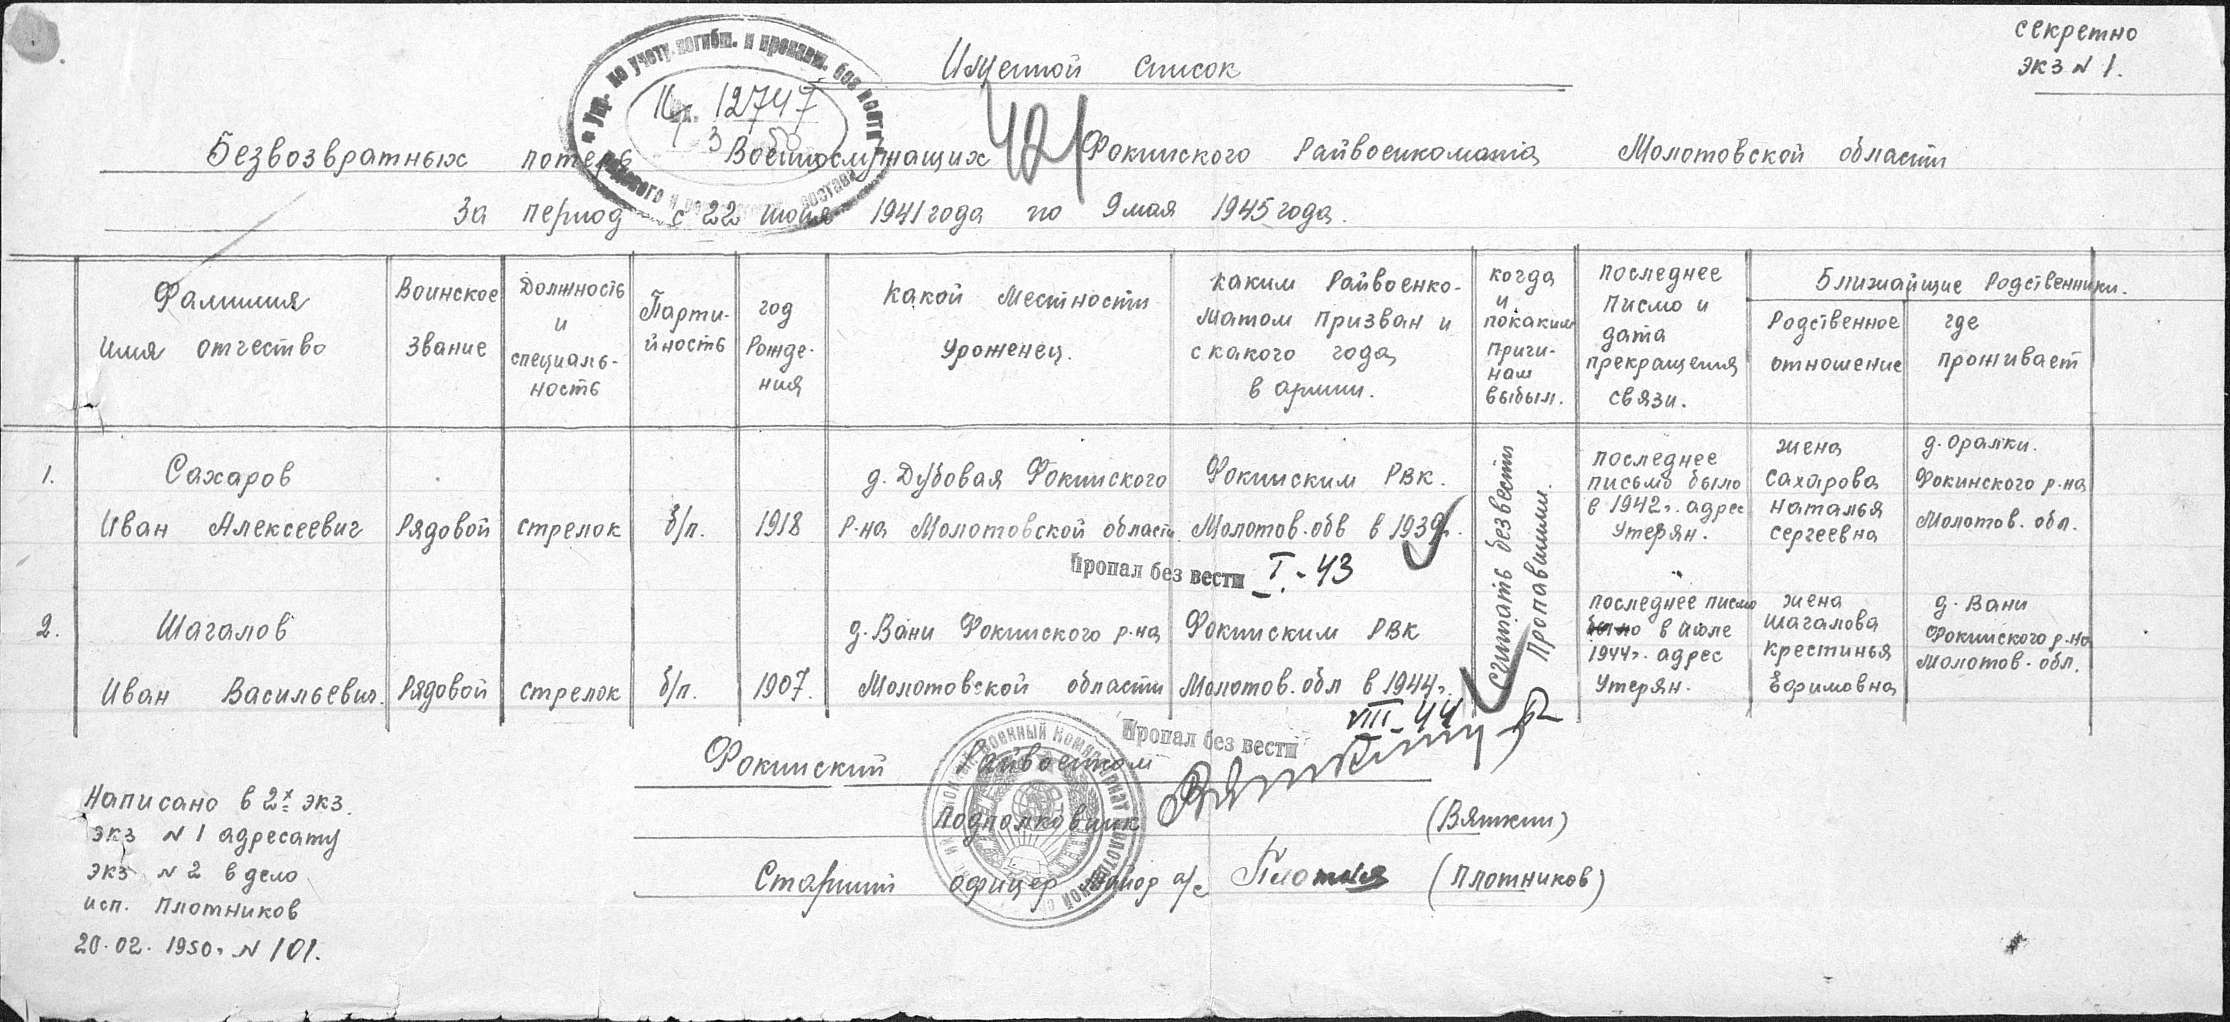 секретно
экз № 1.
Именной список
Упр. по учету погибш. и пропавш. без вести
рядового и состава
Вх. 12747
3 50
421
Безвозвратных потерь Военнослужащих Фокинского Райвоенкомата Молотовской области
За период с 22 июня 1941 года по 9 мая 1945 года.
Фамилия
Имя отчество
Воинское
Звание
Должность
и
специаль-
ность
Парти-
йность
год
Рожде-
ния
Какой Местности
Уроженец.
Каким Райвоенко-
матом призван и
с какого года
в армии.
когда
и
по каким
причи-
нам
выбыл.
последнее
письмо и
дата
прекращения
связи.
Ближайщие Родственники.
Родственное
отношение
где
проживает
1.
Сахаров
Иван Алексеевич
Рядовой
стрелок
б/п.
1918
д. Дубовая Фокинского
Р-на Молотовской области
Фокинским РВК.
Молотов. обв в 1939г.
Пропал без вести I - 43
Считать безвести
Пропавшими.
последнее
письмо было
в 1942г. адрес
Утерян.
жена
Сахарова
Наталья
Сергеевна
д. Оралки.
Фокинского р-на
Молотов. обл.
2.
Шагалов
Иван Васильевич.
Рядовой
стрелок
б/п.
1907.
д. Вани Фокинского р-на
Молотовской области
Фокинским РВК
Молотов. обл в 1944г.
Пропал без вести VIII - 44
последнее письмо
было в июле
1944г. адрес
Утерян.
жена
Шагалова
Крестинья
Ефимовна
д. Вани
Фокинского р-на
Молотов. обл.
Фокинский Райвоенком
Подполковник (Вяткин)
Старший офицер майор а/с (Плотников)
Написано в 2х экз.
экз № 1 адресату
экз № 2 в дело
исп. Плотников
20.02.1950г. № 101.